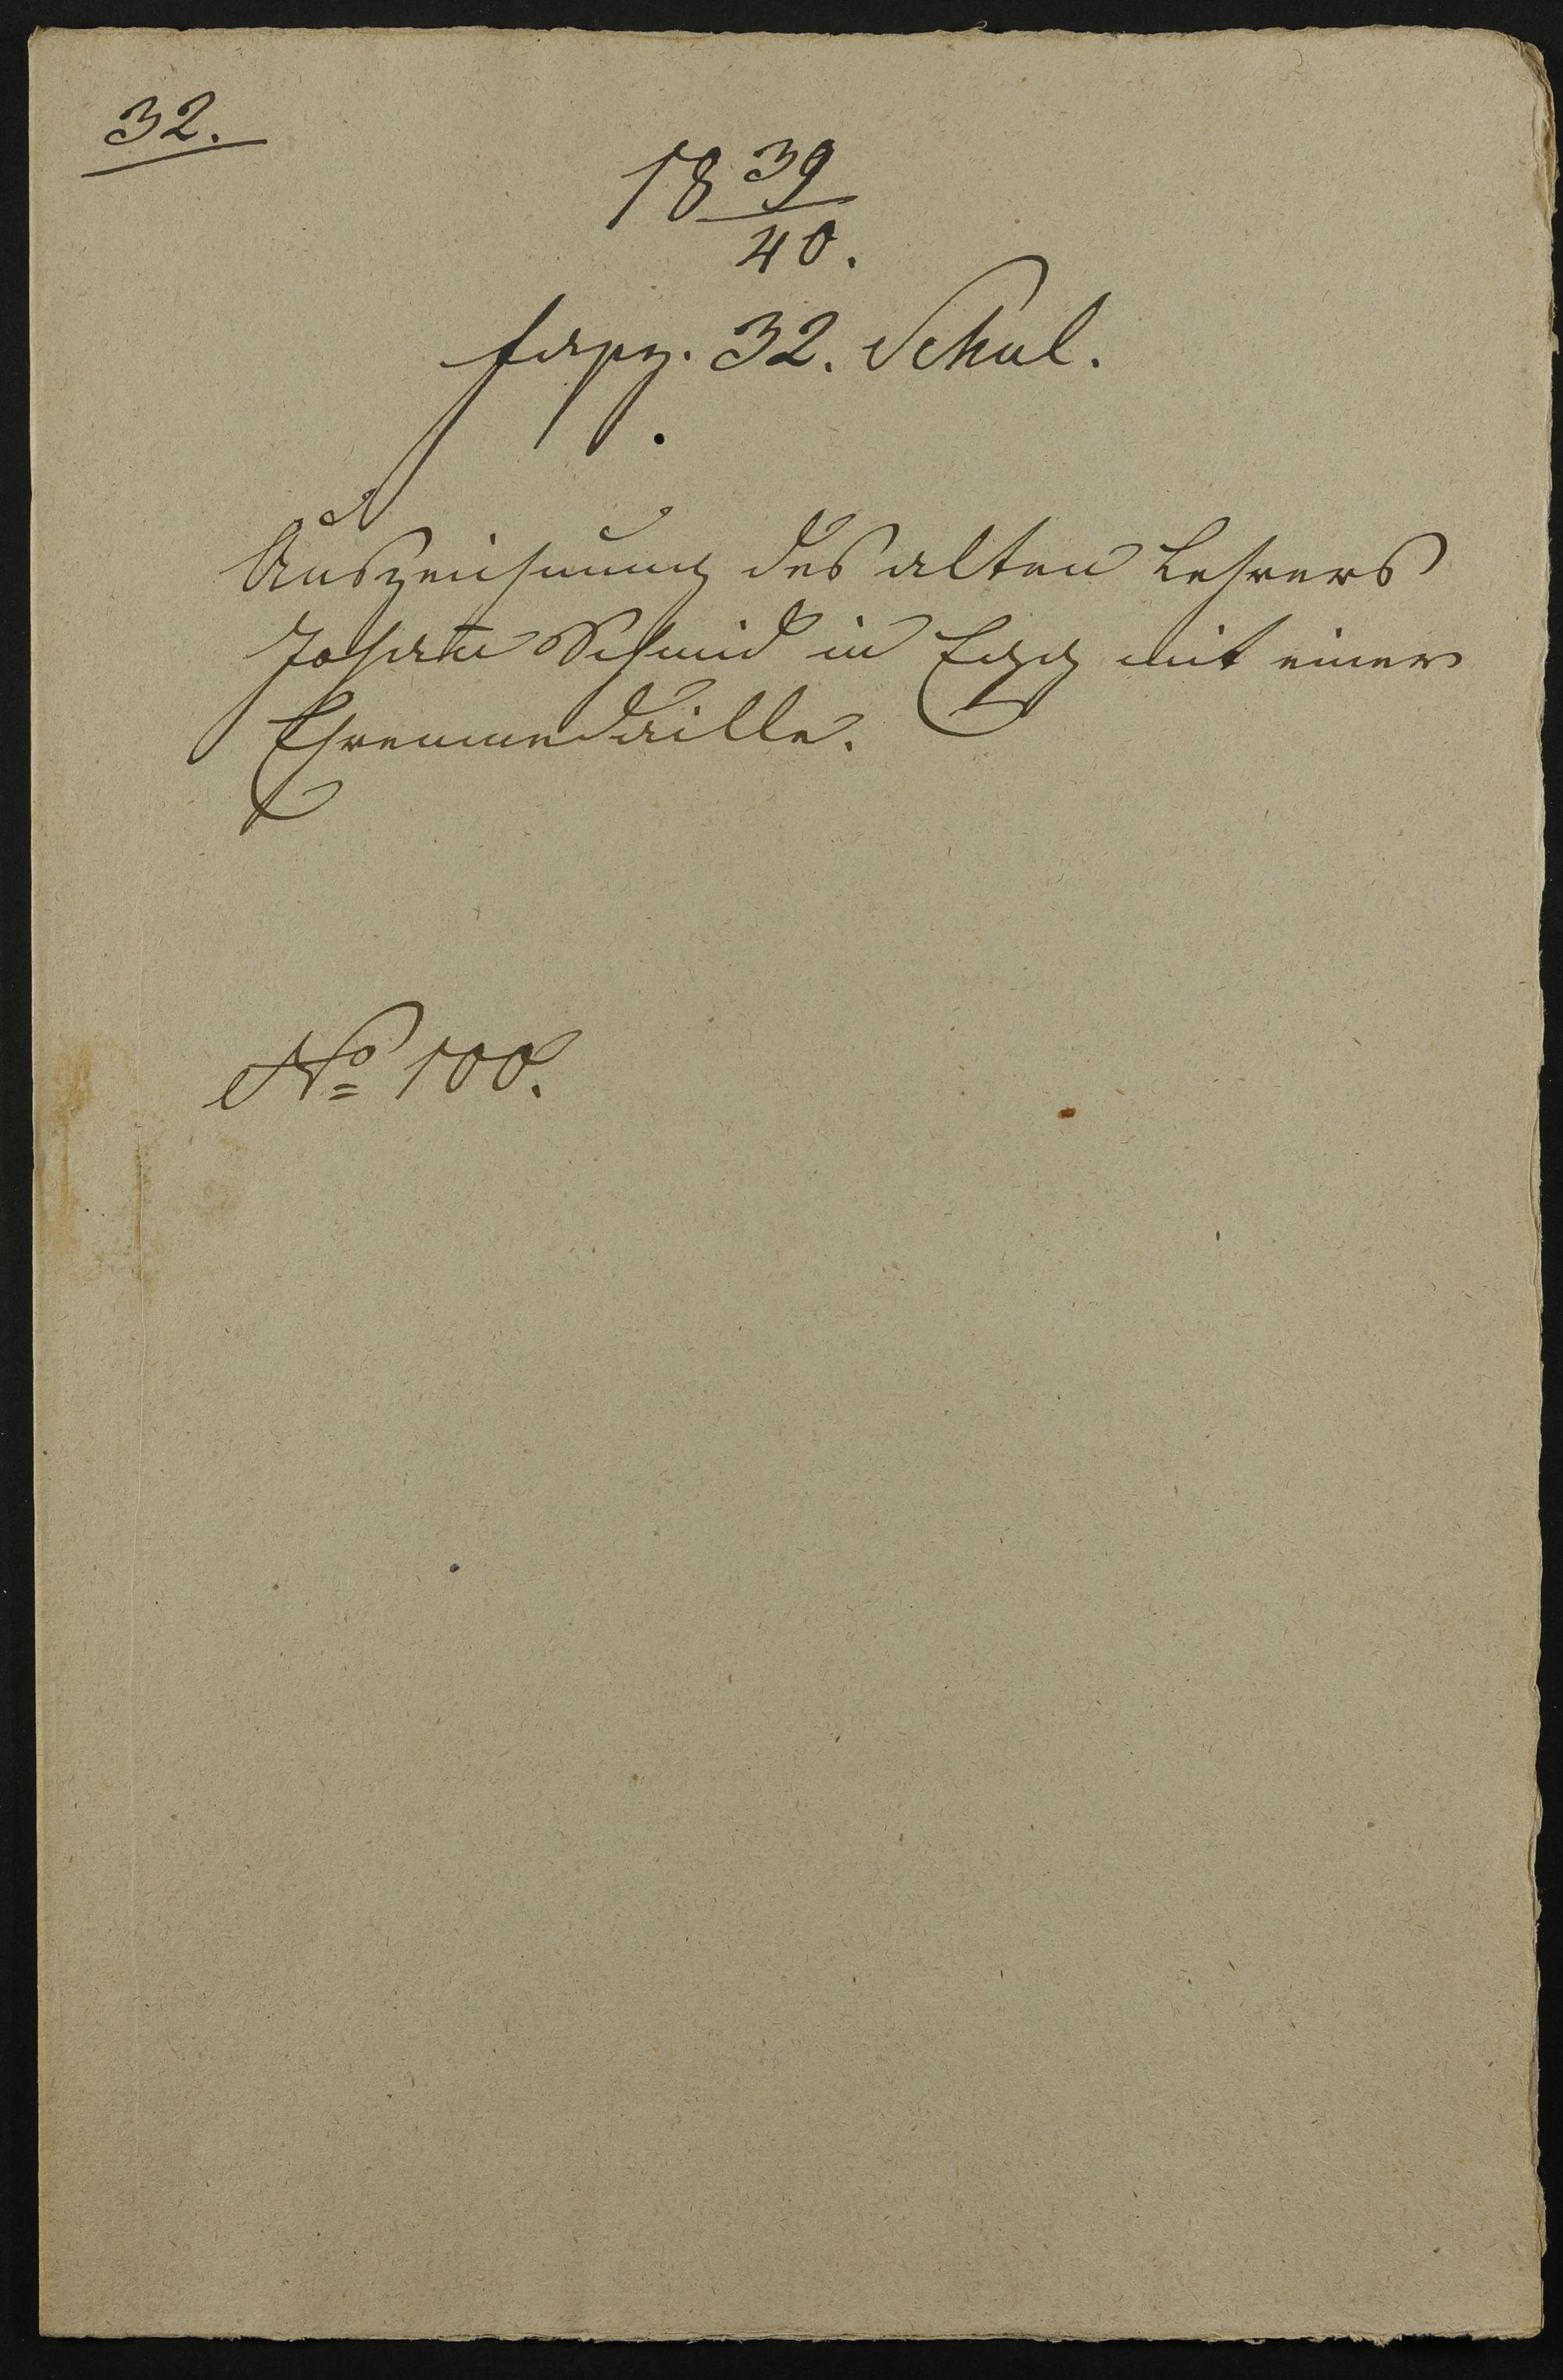 32.
18 39/40.
fasz. 32. Schul.
Auszeichnung des alten Lehrers
Johan̅ Schmid in Egg mit einer
Ehrenmedaille.
No 100.